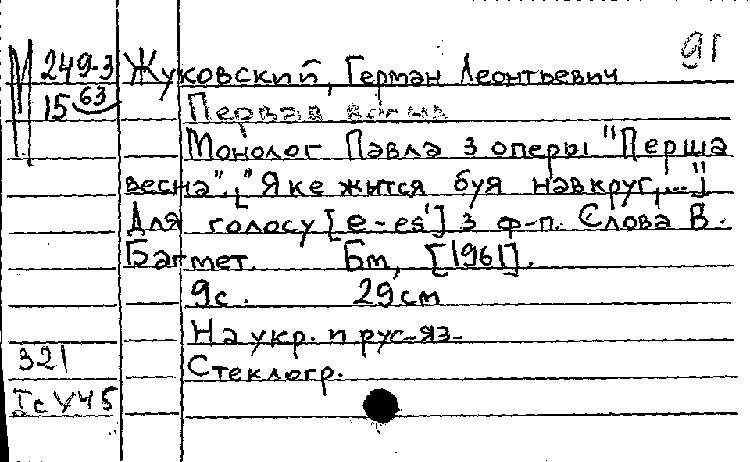 91
М 249-3 Жуковский, Герман Леонтьевич
15 63 Первая весна
Монолог Павла з оперы "Перша
весна". ["Яке життя буя навкруг,..."]
Для голосу [e-es'] з ф-п. Слова В.
Багмет. Бм, [1961].
9с. 29см
На укр. и рус-яз-
321 Стеклогр.
IсУ45